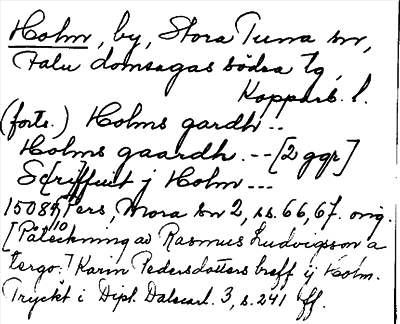 Holm, by, Stora Tuna sn,
Falu domsagas södra tg,
Kopparb. l.
(forts.) Holms gardh --
Holms gaardh. -- [2 ggr]
Sc[r]iffuit j Holm ---
1508 5/10 Pers, Mora sn 2, ss. 66, 67. orig.
[Påteckning av Rasmus Ludvigsson a
tergo:] Karin Pedersdotters breff ij Holm.
Tryckt i Dipl. Dalecarl. 3, s. 241 ff.